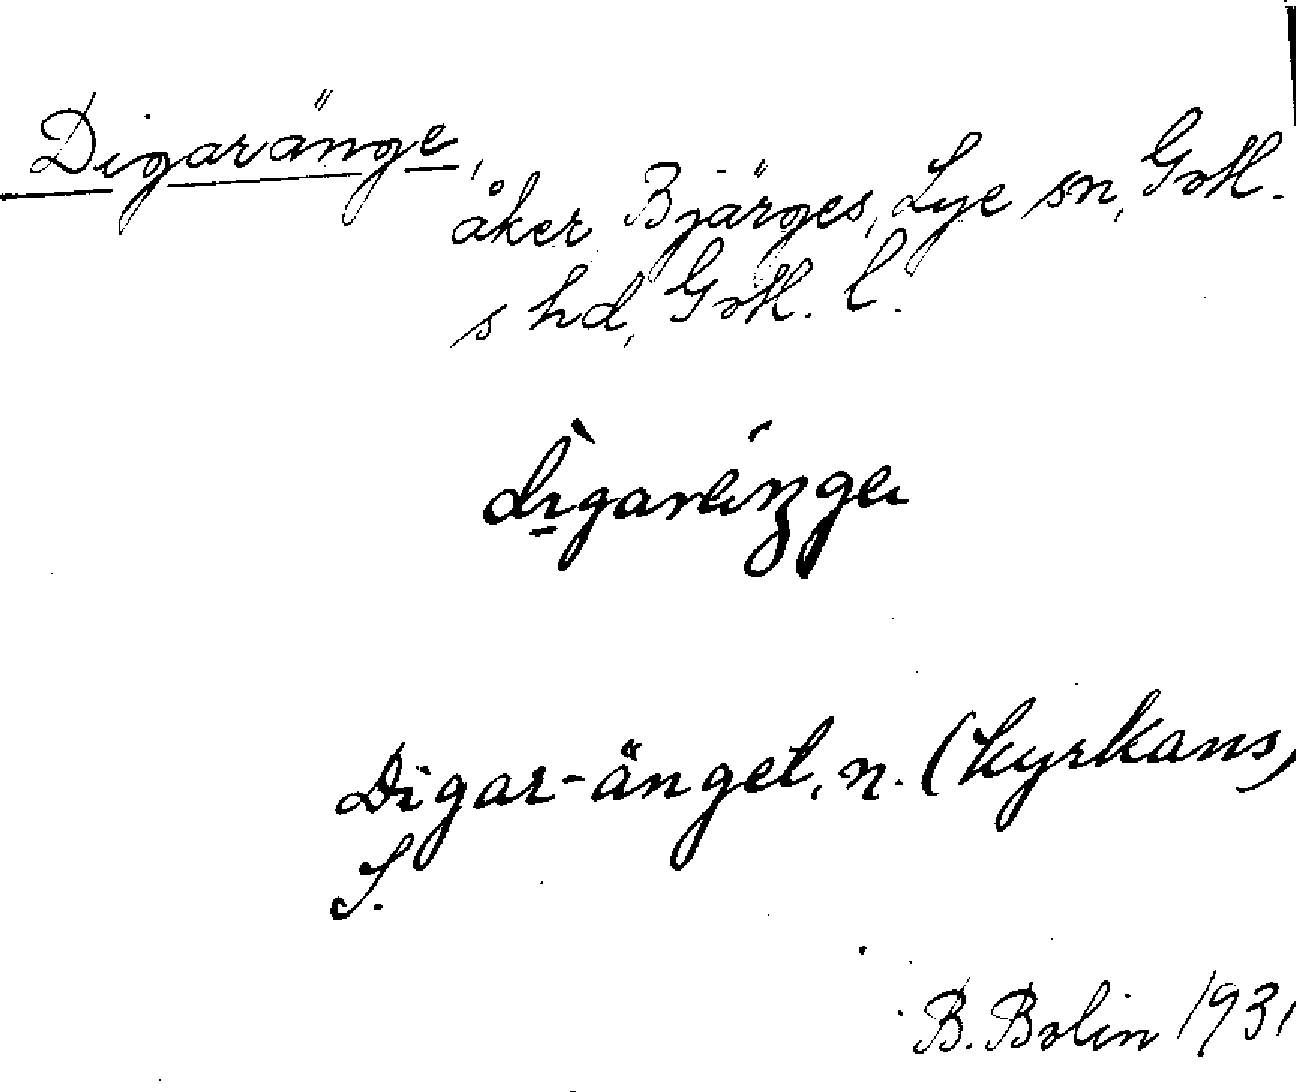 Digaränge,
åker Bjärges, Lye sn, Gotl.
s hd, Gotl. l.
Digar-änget, n. (kyrkans)
S.
B. Bolin 1931